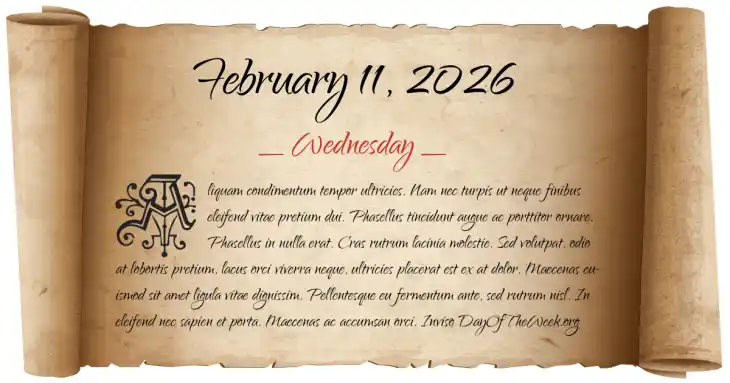 February 11, 2026
— Wednesday —
Aliquam condimentum tempor ultricies. Nam nec turpis ut neque finibus
eleifend vitae pretium dui. Phasellus tincidunt augue ac porttitor ornare.
Phasellus in nulla erat. Cras rutrum lacinia molestie. Sed volutpat, odio
at lobortis pretium, lacus orci viverra neque, ultricies placerat est ex at dolor. Maecenas eu-
ismod sit amet ligula vitae dignissim. Pellentesque eu fermentum ante, sed rutrum nisl. In
eleifend nec sapien et porta. Maecenas ac accumsan orci. Inviso DayOfTheWeek.org